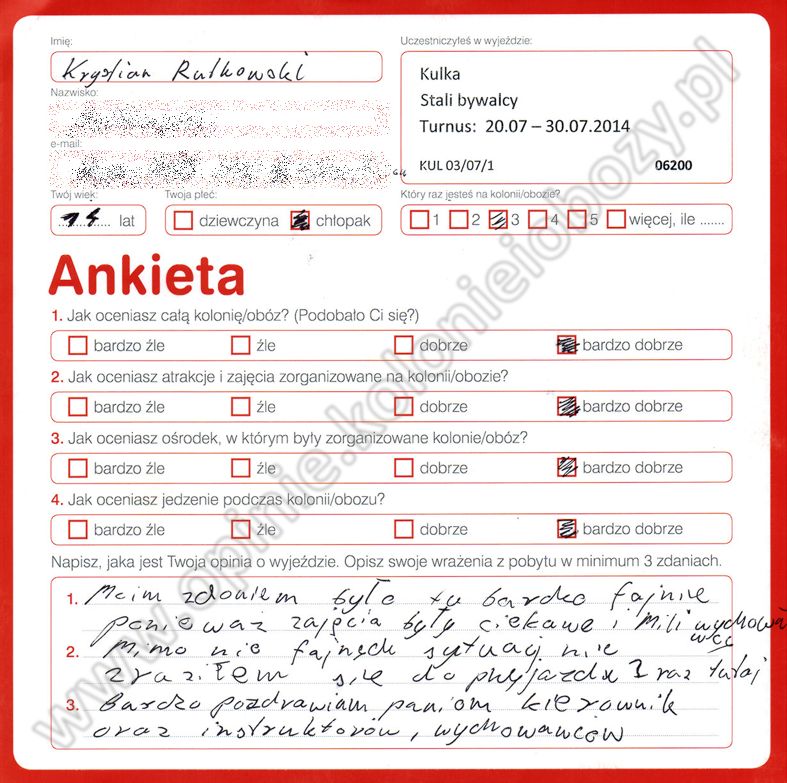 Imię:
Krystian Rutkowski
Uczestniczyłeś w wyjeździe:
Kulka
Stali bywalcy
Turnus: 20.07 – 30.07.2014
KUL 03/07/1 06200
Nazwisko:
e-mail:
Twój wiek:
14 lat
Twoja płeć:
dziewczyna chłopak
Który raz jesteś na kolonii/obozie?
1 2 3 4 5 więcej, ile .......
Ankieta
1. Jak oceniasz całą kolonię/obóz? (Podobało Ci się?)
bardzo źle źle dobrze bardzo dobrze
2. Jak oceniasz atrakcje i zajęcia zorganizowane na kolonii/obozie?
bardzo źle źle dobrze bardzo dobrze
3. Jak oceniasz ośrodek, w którym były zorganizowane kolonie/obóz?
bardzo źle źle dobrze bardzo dobrze
4. Jak oceniasz jedzenie podczas kolonii/obozu?
bardzo źle źle dobrze bardzo dobrze
Napisz, jaka jest Twoja opinia o wyjeździe. Opisz swoje wrażenia z pobytu w minimum 3 zdaniach.
1. Moim zdaniem było tu bardzo fajnie
ponieważ zajęcia były ciekawe i mili wychowa
wcy
2. Mimo nie fajnych sytuacji nie
zraziłem się do przyjazdu 3 raz tutaj
3. Bardzo pozdrawiam paniom kierownik
oraz instruktorów, wychowawców
www.opinie.kolonieiobozy.pl